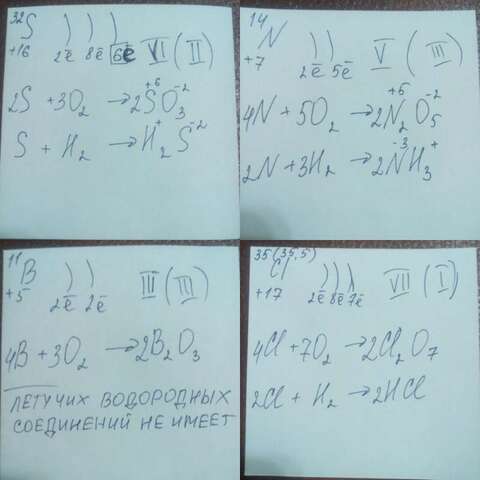 32
S ) ) )
+16 2ē 8ē 6ē VI (II)
2S + 3O₂ → 2S⁺⁶O₃⁻²
S + H₂ → H₂⁺S⁻²
14
N ) )
+7 2ē 5ē V (III)
4N + 5O₂ → 2N₂⁺⁶O₅⁻²
2N + 3H₂ → 2N⁻³H₃⁺
11
B ) )
+5 2ē 2ē III (III)
4B + 3O₂ → 2B₂O₃
ЛЕТУЧИХ ВОДОРОДНЫХ
СОЕДИНЕНИЙ НЕ ИМЕЕТ
35(35,5)
Cl ) ) )
+17 2ē 8ē 7ē VII (I)
4Cl + 7O₂ → 2Cl₂O₇
2Cl + H₂ → 2HCl